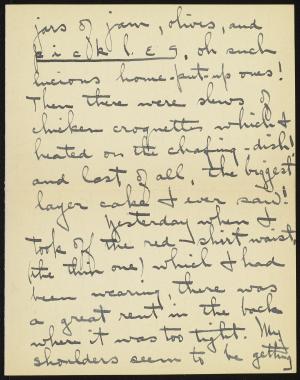 jars of jam, olives, and
pickles, oh such
luscious home-put-up ones!
Then there were slews of
chicken croquettes which I
heated on the chafing-dish!
and last of all, the biggest
layer cake I ever saw!
Yesterday when I
took off the red shirt waist,
(the thin one) which I had
been wearing there was
a great rent in the back
where it was too tight. My
shoulders seem to be getting